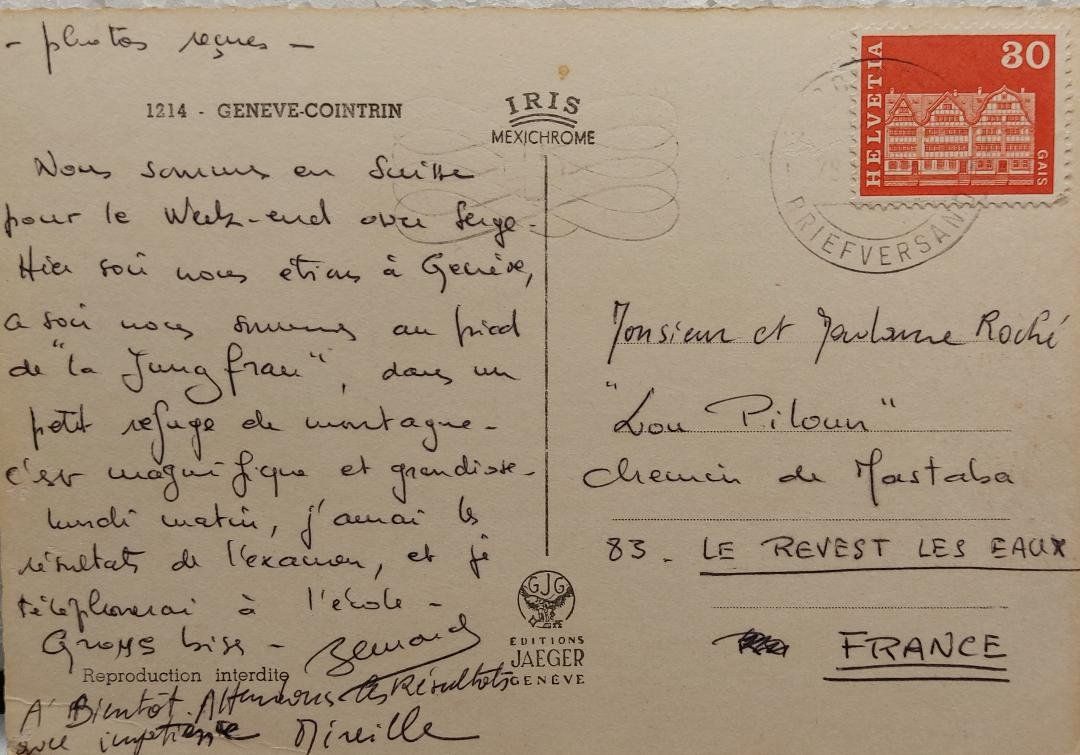 - photos reçues -
1214 - GENEVE-COINTRIN
IRIS
MEXICHROME
HELVETIA
30
GAIS
BRIEFVERSAND
Nous sommes en Suisse
pour le Week-end avec Serge.
Hier soir nous étions à Genève,
ce soir nous sommes au pied
de "la Jungfrau", dans un
petit refuge de montagne -
c'est magnifique et grandiose -
lundi matin, j'aurai les
résultats de l'examen, et je
téléphonerai à l'école -
Grosses bises - Bernard
Reproduction interdite
A' Bientôt. Attendons les Résultats
avec impatience Mireille
GJG
EDITIONS
JAEGER
GENÈVE
Monsieur et Madame Roché
"Lou Piloun"
Chemin de Mastaba
83 - LE REVEST LES EAUX
FRANCE